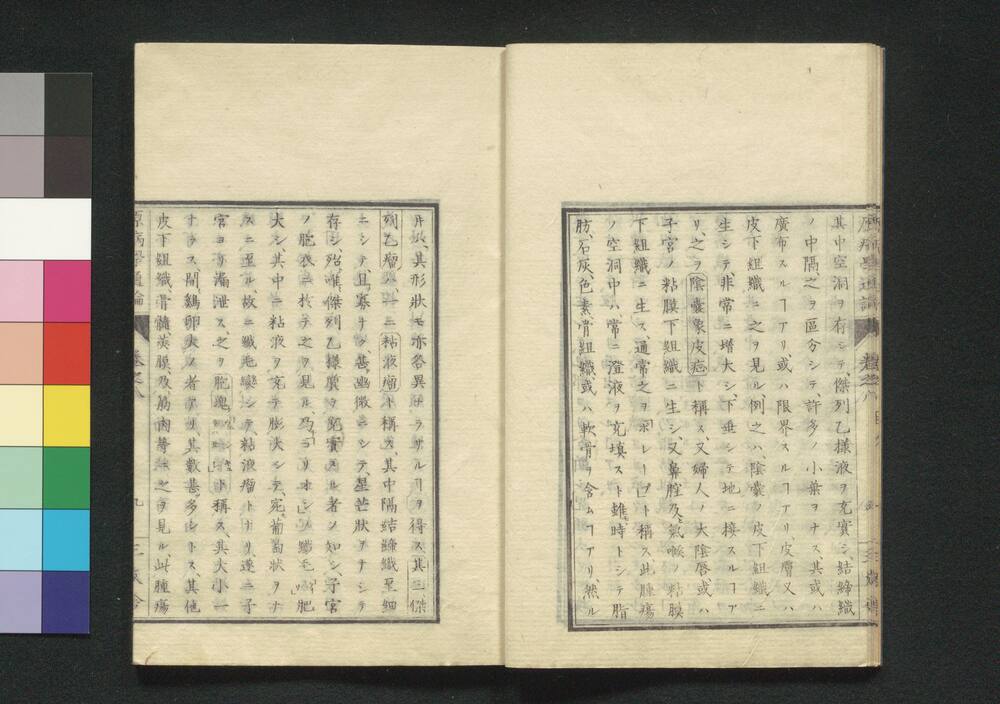 其中空洞ヲ有シテ、傑列乙様液ヲ充實シ、結締織
ノ中隔、之ヲ區分シテ、許多ノ小葉ヲナス、其或ハ
廣布スルヿアリ、或ハ限界スルヿアリ、皮膚又ハ
皮下組織ニ之ヲ見ル、例之ハ、陰嚢ノ皮下組織ニ
生シテ非常ニ增大シ、下垂シテ地ニ接スルヿア
リ、之ヲ陰嚢象皮疤ト稱ス、又婦人ノ大陰唇或ハ
子宮ノ粘膜下組織ニ生シ、又鼻腔及氣喉ノ粘膜
下組織ニ生ス、通常之ヲポレーㇷ゚ト稱ス、此腫瘍
ノ空洞中ハ、常ニ澄液ヲ充填スト雖、時トシテ脂
肪、石灰、色素、骨組織或ハ軟骨ヲ含ムヿアリ、然ル
片ハ、其形狀モ亦各異ナラサルヿヲ得ス、其三傑
列乙瘤ハ、一ニ粘液瘤ト稱ス、其中隔結締織至細
ニシテ、且寡ナク、甚幽微ニシテ、星芒狀ヲナシテ
存シ、殆唯傑列乙様質ヲ充實スル者ノ如シ、子宮
ノ胞衣ニ於テ之ヲ見ル、
大シ、其中ニ粘液ヲ充テ膨決シテ、宛葡萄状ヲナ
スニ至ル、故ニ纖毛變シテ粘液瘤トナリ、遂ニ子
宮ヨリ漏泄ス、之ヲ胞塊ト稱ス、其大小一
ナラス、間鷄卵大ノ者アリ、其數甚多シトス、其他
皮下組織、骨髓、莢膜、及筋肉等ニ之ヲ見ル、此腫瘍
原病學通論
卷之八
九
三友舎